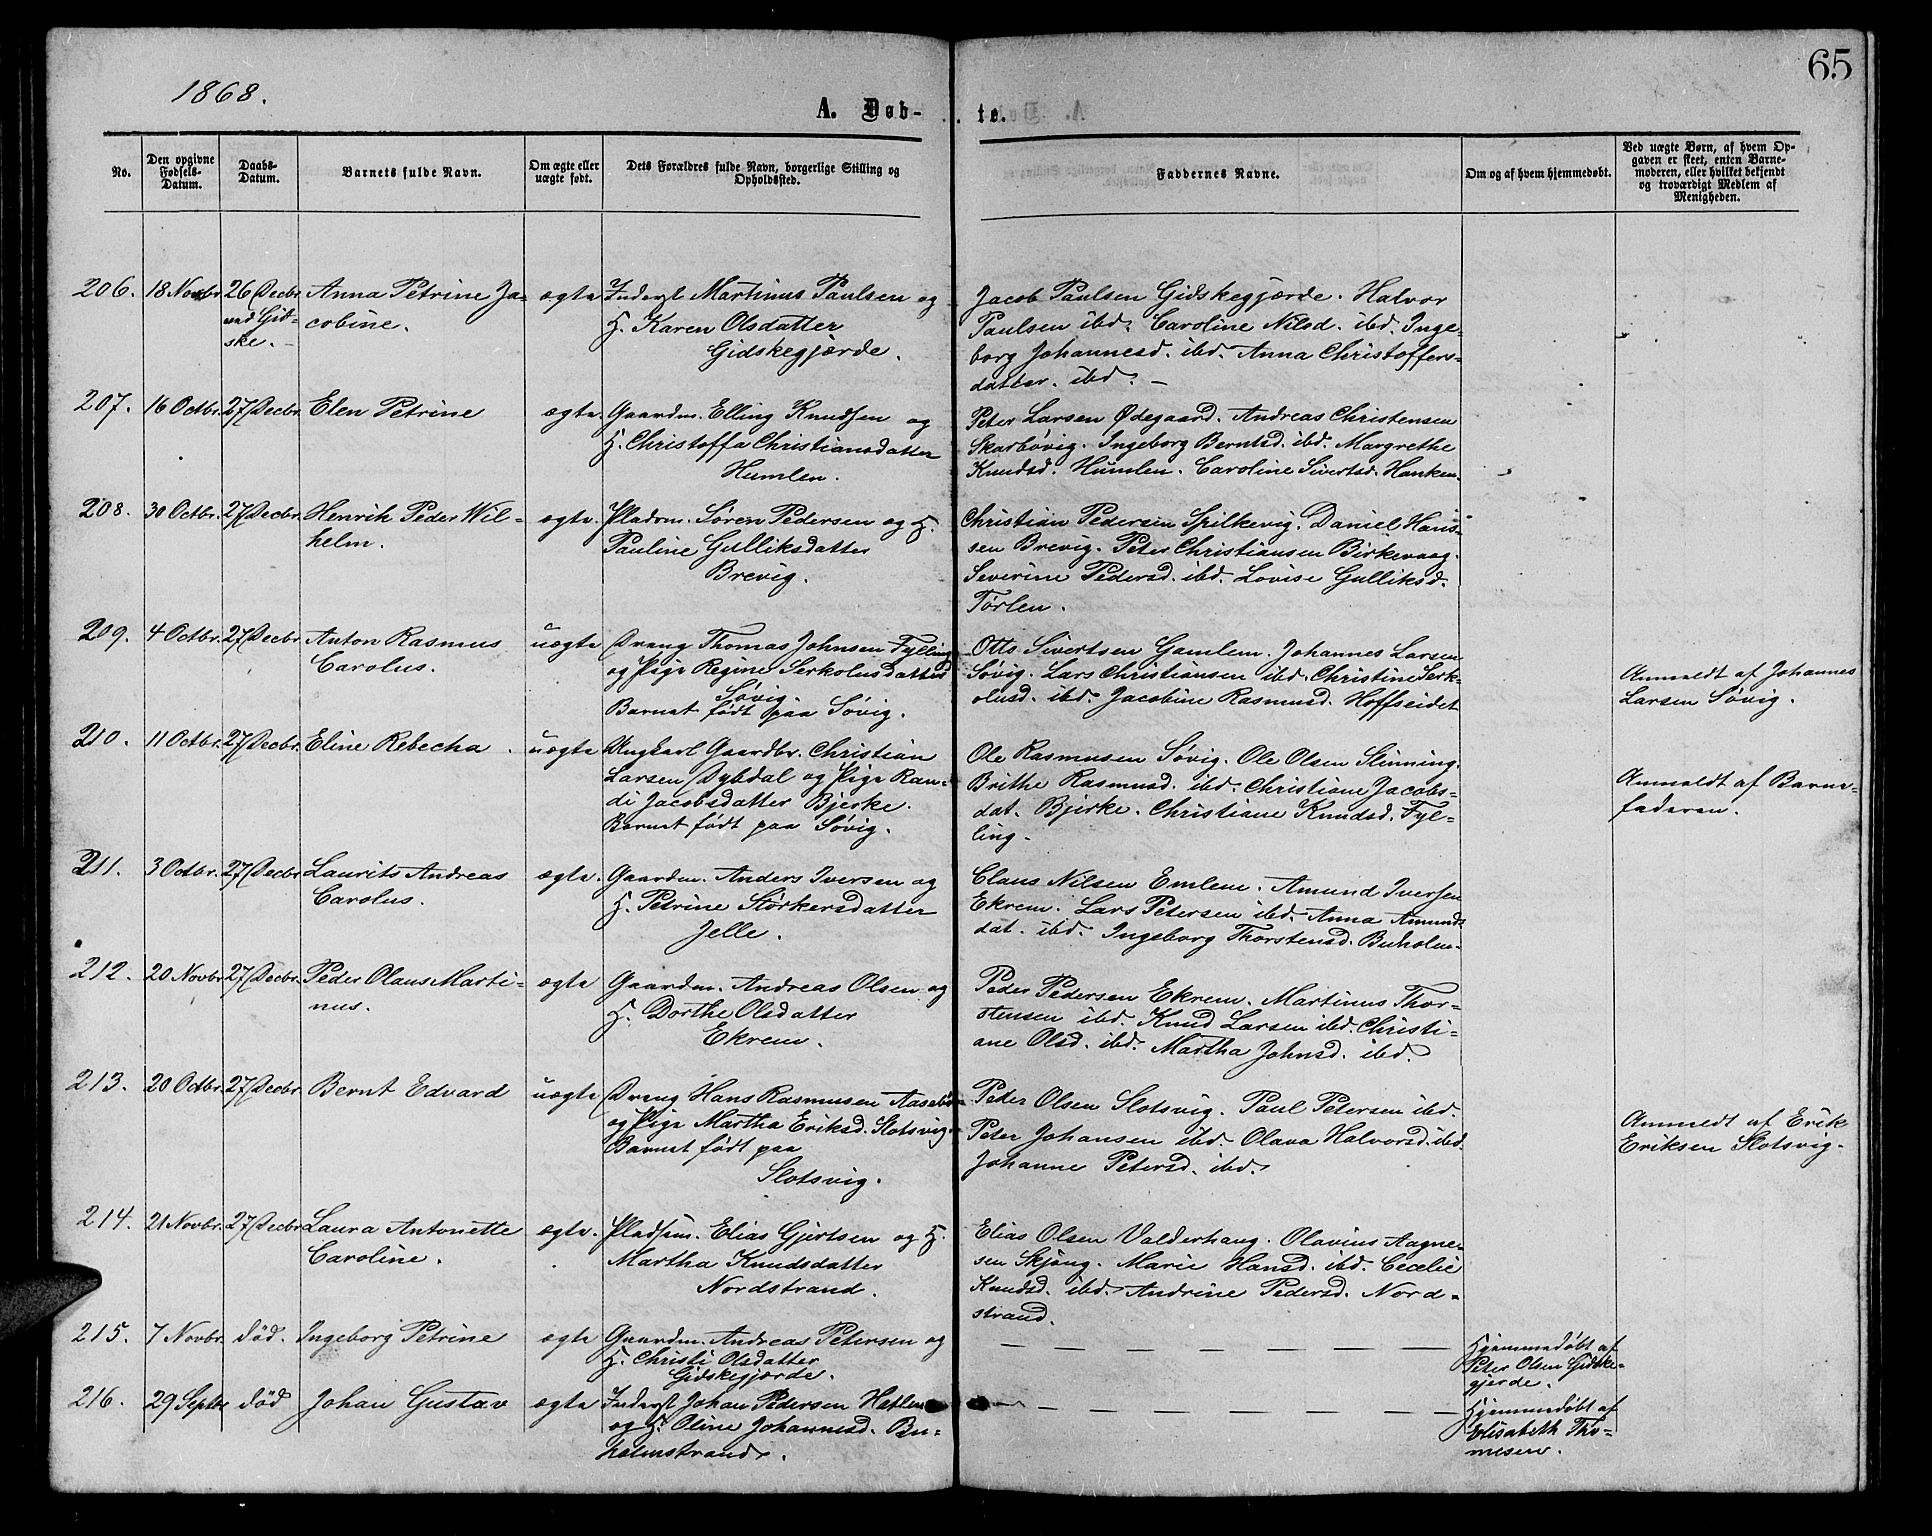 65
1868.
A. Døb-
te.
No.
Den opgivne Fødsels-Datum.
Daabs-Datum.
Barnets fulde Navn.
Om ægte eller uægte født.
Dets Forældres fulde Navn, borgerlige Stilling og Opholdssted.
Faddernes Navne.
Om og af hvem hjemmedøbt.
Ved uægte Børn, af hvem Opgaven er skeet, enten Barnemoderen, eller hvilket bekjendt og troværdigt Medlem af Menigheden.
206. 18 Novbr 26 Decbr Anna Petrine Ja- ægte Inderst Martinus Paulsen og
ved Gid- cobine. H. Karen Olsdatter
ske. Gidskegjærde.
Jacob Paulsen Gidskegjærde. Halvor
Paulsen ibd. Caroline Nilsd. ibd. Inge-
borg Johannesd. ibd. Anna Christoffers-
datter. ibd.
207. 16 Octbr. 27 Decbr. Elen Petrine ægte Gaardm. Elling Knudsen og
H. Christoffa Christiansdatter
Humlen.
Peter Larsen Ødegaard. Andreas Christensen
Skarbøvig. Ingeborg Berntsd. ibd. Margrethe
Knudsd. Humlen. Caroline Sivertsd. Hanken.
208. 30 Octbr. 27 Decbr. Henrik Peder Wil- ægte. Pladsm. Søren Pedersen og H.
helm. Pauline Gulliksdatter
Brevig.
Christian Pedersen Spilkevig. Daniel Hans-
sen Brevig. Peter Christiansen Birkevaag.
Severine Pedersd. ibd. Lovise Gulliksd.
Tørlen.
209. 4 Octbr. 27 Decbr. Anton Rasmus uægte Dreng Thomas Johnsen Fylling
Carolus. og Pige Regine Serkolusdatter
Søvig.
Barnet født paa Søvig.
Otto Sivertsen Gamlem. Johannes Larsen
Søvig. Lars Christiansen ibd. Christine Serk-
olusd. ibd. Jacobine Rasmusd. Hoffseidet
Anmeldt af Johannes
Larsen Søvig.
210. 11 Octbr. 27 Decbr. Eline Rebecha. uægte Ungkarl Gaardbr. Christian
Larsen Dybdal og Pige Ran-
di Jacobsdatter Bjerke.
Barnet født paa Søvig.
Ole Rasmusen Søvig. Ole Olsen Slinning.
Brithe Rasmusd. ibd. Christiane Jacobs-
dat. Bjerke. Christiane Knudsd. Fyl-
ling.
Anmeldt af Barne-
faderen.
211. 3 Octbr. 27 Decbr Laurits Andreas ægte. Gaardm. Anders Iversen og
Carolus. H. Petrine Størkersdatter
Jelle.
Claus Nilsen Emlem. Amund Iversen
Ekrem. Lars Petersen ibd. Anna Amunds
dat. ibd. Ingeborg Thorstensd. Buholm.
212. 20 Novbr 27 Decbr. Peder Olaus Marti- ægte Gaardm. Andreas Olsen og
nus. H. Dorthe Olsdatter
Ekrem.
Peder Pedersen Ekrem. Martinus Thor-
stensen ibd. Knud Larsen ibd. Christi-
ane Olsd. ibd. Martha Johnsd. ibd.
213. 20 Octbr. 27 Decbr. Bernt Edvard uægte Dreng Hans Rasmusen
og Pige Martha Eriksd. Slotsvig.
Barnet født paa
Slotsvig.
Peder Olsen Slotsvig. Paul Petersen ibd.
Peter Johansen ibd. Olava Halvorsd. ibd.
Johanne Petersd. ibd.
Anmeldt af Erik
Eriksen Slotsvig.
214. 21 Novbr. 27 Decbr Laura Antonette ægte. Pladsm. Elias Gjertsen og H.
Caroline. Martha Knudsdatter
Nordstrand.
Elias Olsen Valderhaug. Olavius Aagne-
sen Skjong. Marie Hansd. ibd. Cecelie
Knudsd. ibd. Andrine Pedersd. Nord-
strand.
215. 7 Novbr. død. Ingeborg Petrine ægte Gaardm. Andreas Petersen og
H. Christi Olsdatter
Gidskegjærde.
Hjemmedøbt af
Peter Olsen Gidske-
gjerde.
216. 29 Septbr død Johan Gustav ægte Inderst Johan Pedersen Hatlen
og H. Oline Johannesd. Bu-
holmstrand.
Hjemmedøbt af
Elisabeth Tho-
mesen.